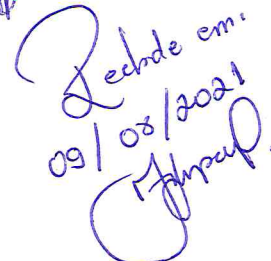 Recbde em:
09/08/2021